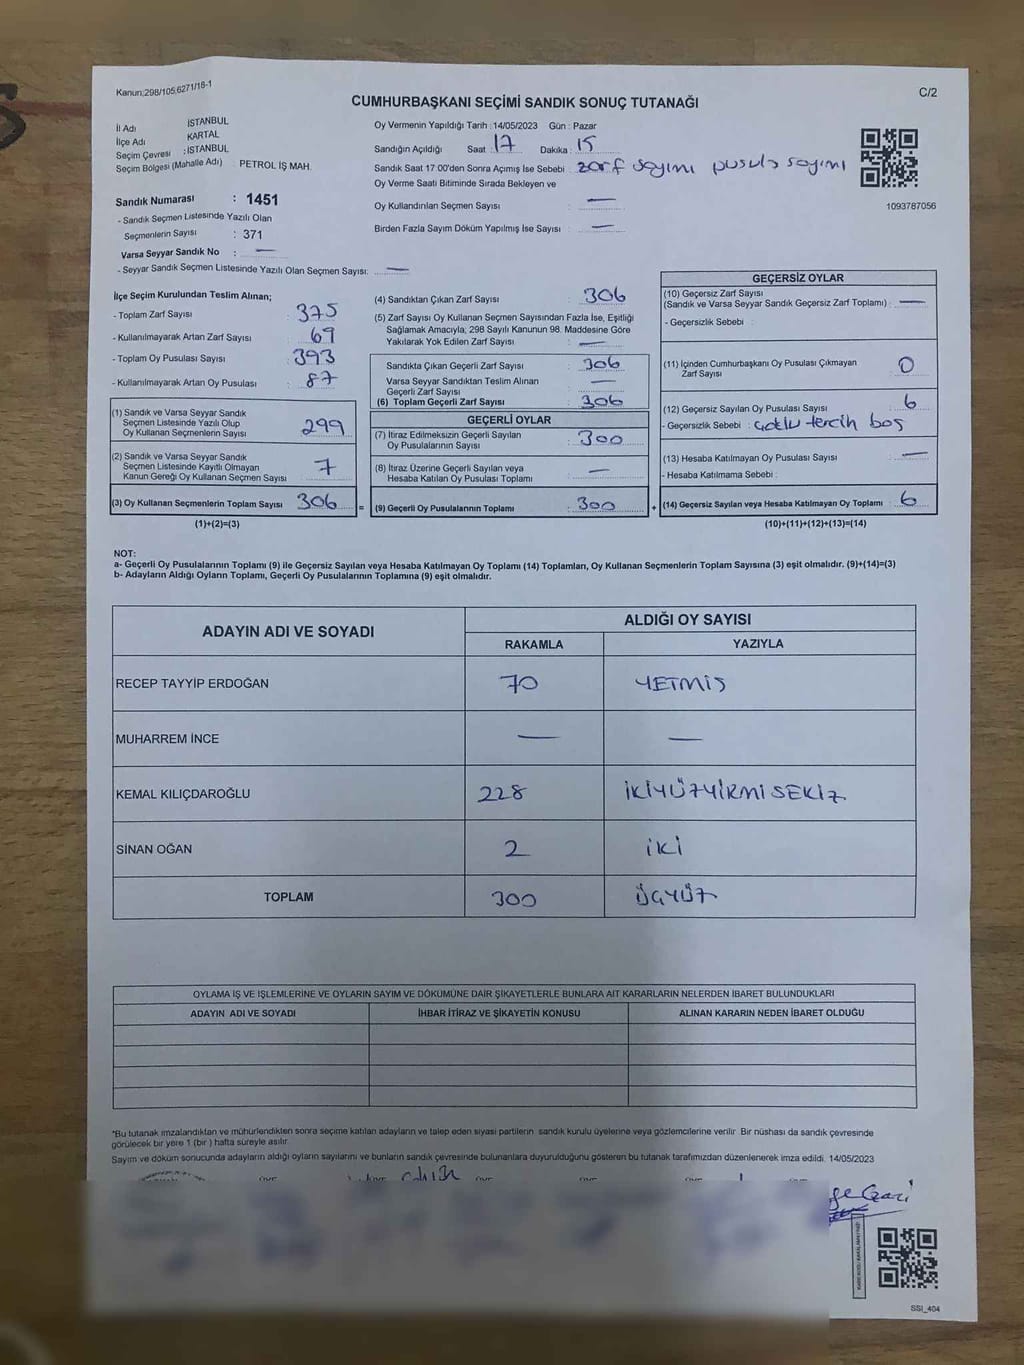 Kanun:298/105,6271/18-1
C/2
CUMHURBAŞKANI SEÇİMİ SANDIK SONUÇ TUTANAĞI
İl Adı : İSTANBUL
İlçe Adı KARTAL
Seçim Çevresi : İSTANBUL
Seçim Bölgesi (Mahalle Adı) : PETROL İŞ MAH.
Sandık Numarası : 1451
- Sandık Seçmen Listesinde Yazılı Olan
Seçmenlerin Sayısı : 371
Varsa Seyyar Sandık No : —
- Seyyar Sandık Seçmen Listesinde Yazılı Olan Seçmen Sayısı: —
Oy Vermenin Yapıldığı Tarih : 14/05/2023 Gün : Pazar
Sandığın Açıldığı Saat : 17 Dakika : 15
Sandık Saat 17.00'den Sonra Açımış İse Sebebi : zarf sayımı pusula sayımı
Oy Verme Saati Bitiminde Sırada Bekleyen ve
Oy Kullandırılan Seçmen Sayısı : —
Birden Fazla Sayım Döküm Yapılmış İse Sayısı : —
1093787056
İlçe Seçim Kurulundan Teslim Alınan;
- Toplam Zarf Sayısı : 375
- Kullanılmayarak Artan Zarf Sayısı : 69
- Toplam Oy Pusulası Sayısı : 393
- Kullanılmayarak Artan Oy Pusulası : 87
(1) Sandık ve Varsa Seyyar Sandık
Seçmen Listesinde Yazılı Olup
Oy Kullanan Seçmenlerin Sayısı : 299
(2) Sandık ve Varsa Seyyar Sandık
Seçmen Listesinde Kayıtlı Olmayan
Kanun Gereği Oy Kullanan Seçmen Sayısı : 7
(3) Oy Kullanan Seçmenlerin Toplam Sayısı : 306
(1)+(2)=(3)
=
(4) Sandıktan Çıkan Zarf Sayısı : 306
(5) Zarf Sayısı Oy Kullanan Seçmen Sayısından Fazla İse, Eşitliği
Sağlamak Amacıyla, 298 Sayılı Kanunun 98. Maddesine Göre
Yakılarak Yok Edilen Zarf Sayısı : —
Sandıkta Çıkan Geçerli Zarf Sayısı : 306
Varsa Seyyar Sandıktan Teslim Alınan
Geçerli Zarf Sayısı : —
(6) Toplam Geçerli Zarf Sayısı : 306
GEÇERLİ OYLAR
(7) İtiraz Edilmeksizin Geçerli Sayılan
Oy Pusulalarının Sayısı : 300
(8) İtiraz Üzerine Geçerli Sayılan veya
Hesaba Katılan Oy Pusulası Toplamı : —
(9) Geçerli Oy Pusulalarının Toplamı : 300
+
GEÇERSİZ OYLAR
(10) Geçersiz Zarf Sayısı
(Sandık ve Varsa Seyyar Sandık Geçersiz Zarf Toplamı) : —
- Geçersizlik Sebebi :
(11) İçinden Cumhurbaşkanı Oy Pusulası Çıkmayan
Zarf Sayısı : 0
(12) Geçersiz Sayılan Oy Pusulası Sayısı : 6
- Geçersizlik Sebebi : çoklu tercih boş
(13) Hesaba Katılmayan Oy Pusulası Sayısı : —
- Hesaba Katılmama Sebebi :
(14) Geçersiz Sayılan veya Hesaba Katılmayan Oy Toplamı : 6
(10)+(11)+(12)+(13)=(14)
NOT:
a- Geçerli Oy Pusulalarının Toplamı (9) ile Geçersiz Sayılan veya Hesaba Katılmayan Oy Toplamı (14) Toplamları, Oy Kullanan Seçmenlerin Toplam Sayısına (3) eşit olmalıdır. (9)+(14)=(3)
b- Adayların Aldığı Oyların Toplamı, Geçerli Oy Pusulalarının Toplamına (9) eşit olmalıdır.
ADAYIN ADI VE SOYADI
ALDIĞI OY SAYISI
RAKAMLA YAZIYLA
RECEP TAYYİP ERDOĞAN 70 YETMİŞ
MUHARREM İNCE — —
KEMAL KILIÇDAROĞLU 228 İKİYÜZYİRMİSEKİZ
SİNAN OĞAN 2 İKİ
TOPLAM 300 ÜÇYÜZ
OYLAMA İŞ VE İŞLEMLERİNE VE OYLARIN SAYIM VE DÖKÜMÜNE DAİR ŞİKAYETLERLE BUNLARA AİT KARARLARIN NELERDEN İBARET BULUNDUKLARI
ADAYIN ADI VE SOYADI İHBAR İTİRAZ VE ŞİKAYETİN KONUSU ALINAN KARARIN NEDEN İBARET OLDUĞU
*Bu tutanak imzalandıktan ve mühürlendikten sonra seçime katılan adayların ve talep eden siyasi partilerin sandık kurulu üyelerine veya gözlemcilerine verilir. Bir nüshası da sandık çevresinde
görülecek bir yere 1 (bir ) hafta süreyle asılır.
Sayım ve döküm sonucunda adayların aldığı oyların sayılarını ve bunların sandık çevresinde bulunanlara duyurulduğunu gösteren bu tutanak tarafımızdan düzenlenerek imza edildi. 14/05/2023
SSI_404